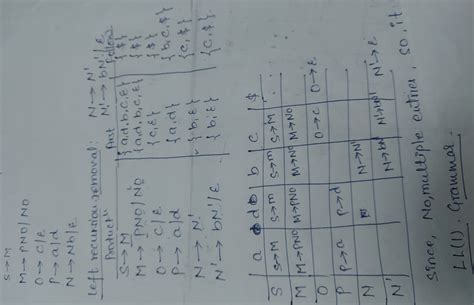 S → M
M → PNO / NO
O → C/ε
P → a/d
N → Nb/ε
Left recursion removal:
N → N'
N' → bN'/ε
Product^n First Follow
S → M {a,d,b,c,ε} {$}
M → PNO/NO {a,d,b,c,ε} {$}
O → C/ε {c,ε} {$}
P → a/d {a,d} {b,c,$}
N → N' {b,ε} {c,$}
N' → bN'/ε {b,ε} {c,$}
a d b c $
S S→M S→M S→M S→M
M M→PNO M→PNO M→NO M→NO
O O→C O→ε
P P→a P→d
N N→N'
N' N'→ε
Since, No, multiple entries, so, it
LL(1) Grammar